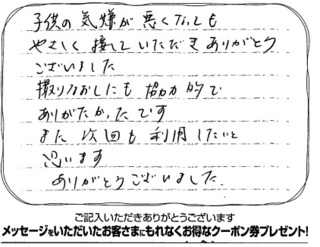 子供の気嫌が悪くなっても
やさしく接していただきありがとう
ございました
撮りなおしにも協力的で
ありがたかったです
また次回も利用したいと
思います
ありがとうございました。
ご記入いただきありがとうございます
メッセージをいただいたお客さまにもれなくお得なクーポン券プレゼント!